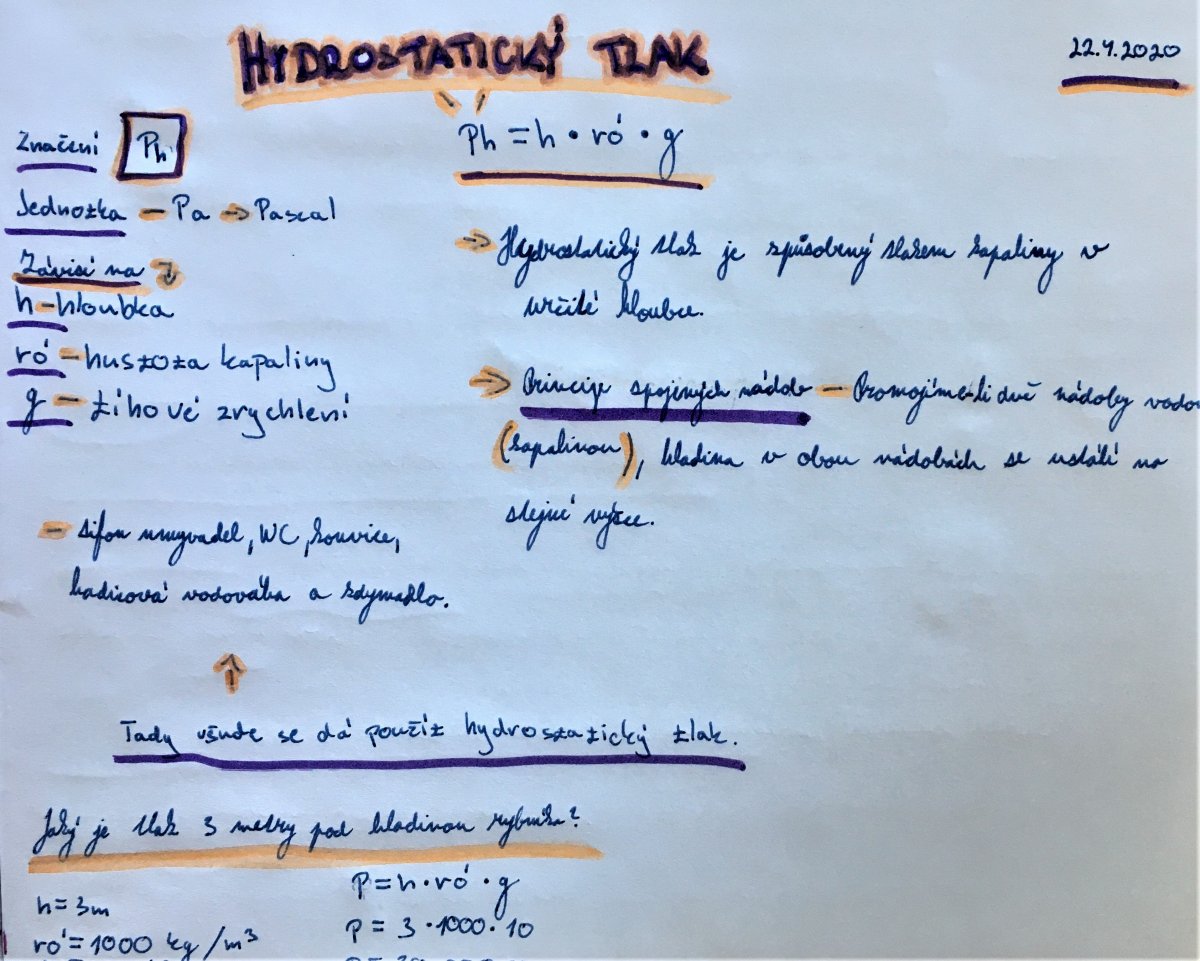 HYDROSTATICKÝ TLAK
22.4.2020
Značení Ph
Ph = h · ró · g
Jednotka – Pa → Pascal
Závisí na
h – hloubka
ró – hustota kapaliny
g – tíhové zrychlení
→ Hydrostatický tlak je způsobený tlakem kapaliny v
určité hloubce.
→ Princip spojených nádob – Propojíme-li dvě nádoby vodou
(kapalinou), hladina v obou nádobách se ustálí na
stejné výšce.
– sifon umyvadel, WC, konvice,
hadicová vodováha a zdymadlo.
↑
Tady všude se dá použít hydrostatický tlak.
Jaký je tlak 3 metry pod hladinou rybníka?
P = h · ró · g
h = 3m
P = 3 · 1000 · 10
ró = 1000 kg/m³